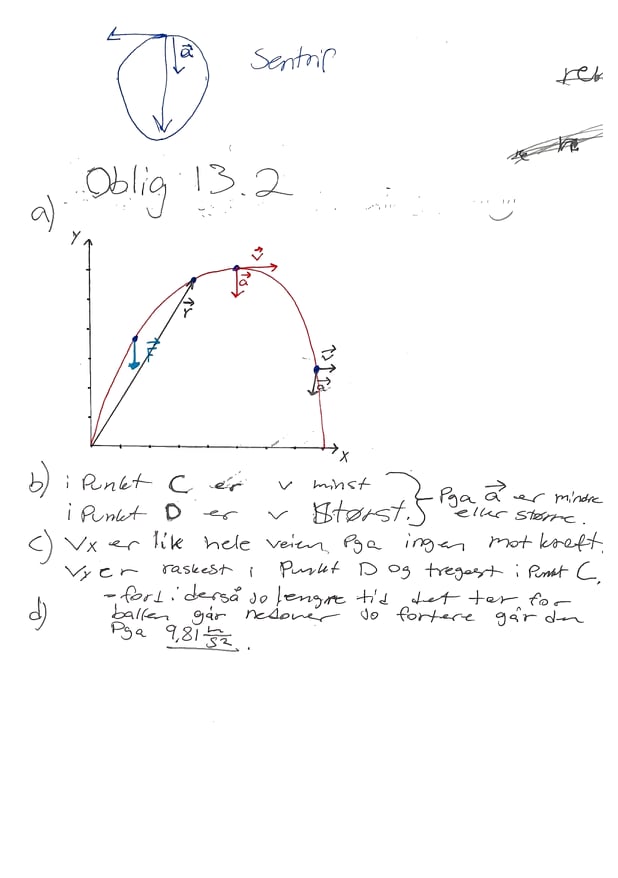 a
Sentrip
Oblig 13.2
a)
y
v
a
r
F
v
a
x
b) i Punkt C er v minst
i Punkt D er v størst. } Pga a er mindre eller større.
c) Vx er lik hele veien, Pga ingen mot kraft.
Vy er raskest i Punkt D og tregest i Punkt C,
d) ballen går nedover jo fortere går den
Pga 9,81 m/s2.